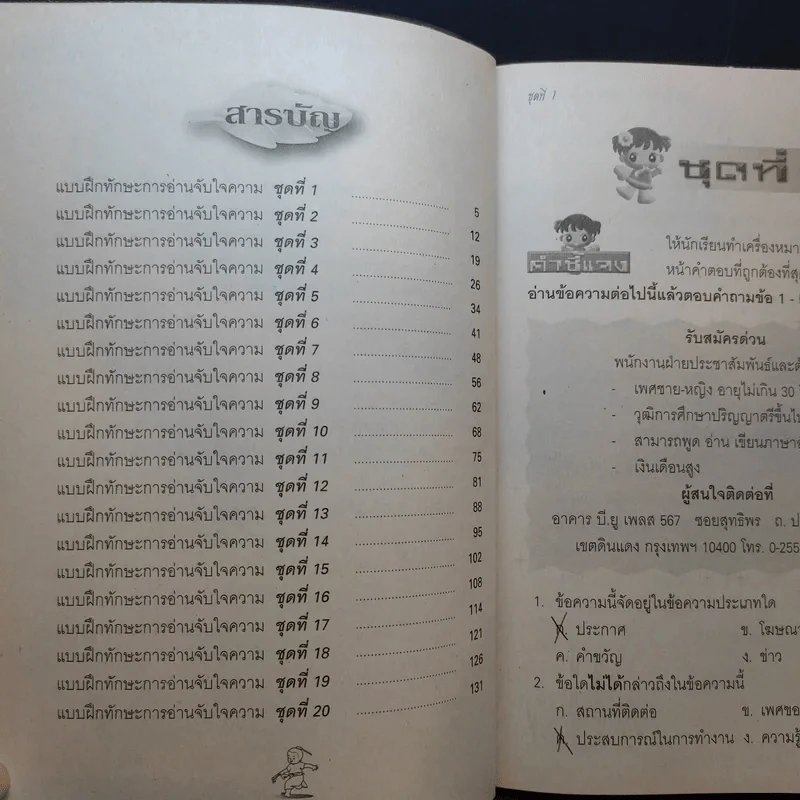 สารบัญ
แบบฝึกทักษะการอ่านจับใจความ ชุดที่ 1 5
แบบฝึกทักษะการอ่านจับใจความ ชุดที่ 2 12
แบบฝึกทักษะการอ่านจับใจความ ชุดที่ 3 19
แบบฝึกทักษะการอ่านจับใจความ ชุดที่ 4 26
แบบฝึกทักษะการอ่านจับใจความ ชุดที่ 5 34
แบบฝึกทักษะการอ่านจับใจความ ชุดที่ 6 41
แบบฝึกทักษะการอ่านจับใจความ ชุดที่ 7 48
แบบฝึกทักษะการอ่านจับใจความ ชุดที่ 8 56
แบบฝึกทักษะการอ่านจับใจความ ชุดที่ 9 62
แบบฝึกทักษะการอ่านจับใจความ ชุดที่ 10 68
แบบฝึกทักษะการอ่านจับใจความ ชุดที่ 11 75
แบบฝึกทักษะการอ่านจับใจความ ชุดที่ 12 81
แบบฝึกทักษะการอ่านจับใจความ ชุดที่ 13 88
แบบฝึกทักษะการอ่านจับใจความ ชุดที่ 14 95
แบบฝึกทักษะการอ่านจับใจความ ชุดที่ 15 102
แบบฝึกทักษะการอ่านจับใจความ ชุดที่ 16 108
แบบฝึกทักษะการอ่านจับใจความ ชุดที่ 17 114
แบบฝึกทักษะการอ่านจับใจความ ชุดที่ 18 121
แบบฝึกทักษะการอ่านจับใจความ ชุดที่ 19 126
แบบฝึกทักษะการอ่านจับใจความ ชุดที่ 20 131
ชุดที่ 1
ชุดที่
คำชี้แจง
ให้นักเรียนทำเครื่องหมา
หน้าคำตอบที่ถูกต้องที่สุด
อ่านข้อความต่อไปนี้แล้วตอบคำถามข้อ 1 -
รับสมัครด่วน
พนักงานฝ่ายประชาสัมพันธ์และต้
- เพศชาย-หญิง อายุไม่เกิน 30
- วุฒิการศึกษาปริญญาตรีขึ้นไป
- สามารถพูด อ่าน เขียนภาษา
- เงินเดือนสูง
ผู้สนใจติดต่อที่
อาคาร บี.ยู เพลส 567 ซอยสุทธิพร ถ. ป
เขตดินแดง กรุงเทพฯ 10400 โทร. 0-255
1. ข้อความนี้จัดอยู่ในข้อความประเภทใด
ก. ประกาศ ข. โฆษณา
ค. คำขวัญ ง. ข่าว
2. ข้อใดไม่ได้กล่าวถึงในข้อความนี้
ก. สถานที่ติดต่อ ข. เพศขอ
ค. ประสบการณ์ในการทำงาน ง. ความรู้